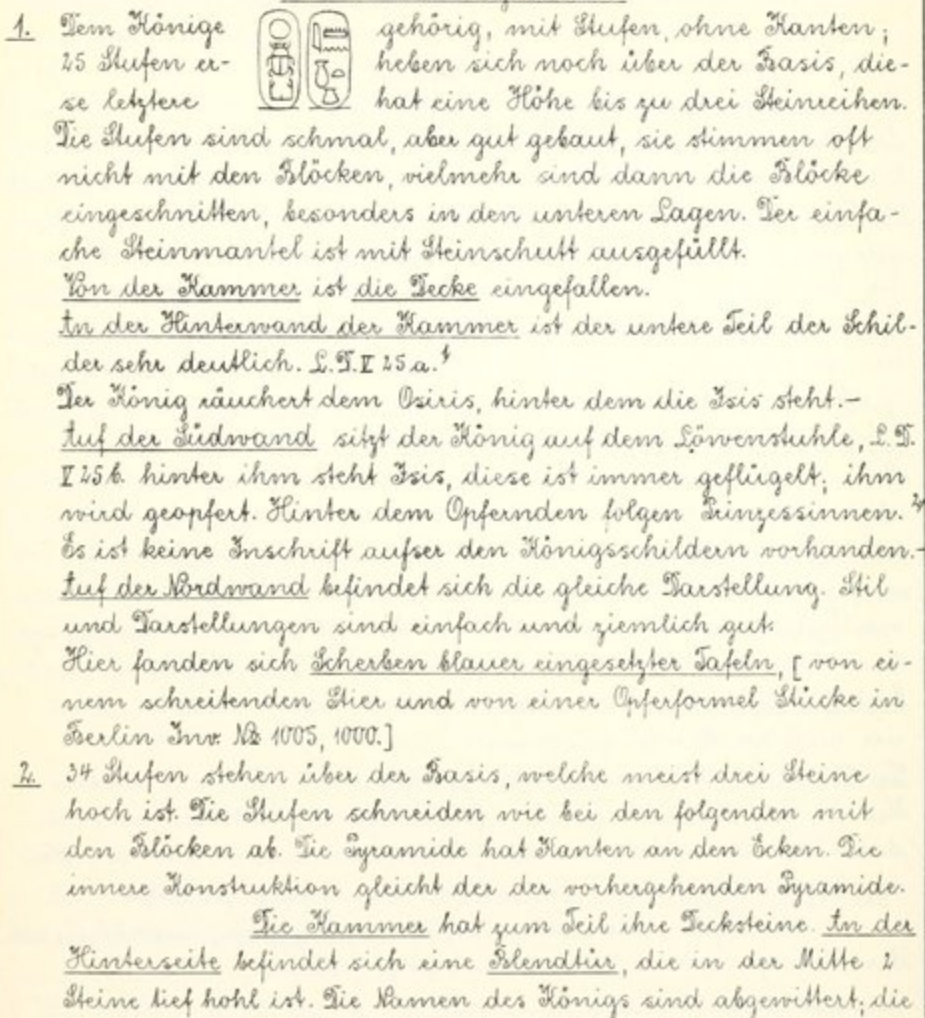 1. Dem Könige gehörig, mit Stufen, ohne Kanten;
25 Stufen er- heben sich noch über der Basis, die-
se letztere hat eine Höhe bis zu drei Steinreihen.
Die Stufen sind schmal, aber gut gebaut, sie stimmen oft
nicht mit den Blöcken, vielmehr sind dann die Blöcke
eingeschnitten, besonders in den unteren Lagen. Der einfa-
che Steinmantel ist mit Steinschutt ausgefüllt.
Von der Kammer ist die Decke eingefallen.
An der Hinterwand der Kammer ist der untere Teil der Schil-
der sehr deutlich. L.D. V 25 a.
Der König räuchert dem Osiris, hinter dem die Isis steht.–
Auf der Südwand sitzt der König auf dem Löwenstuhle, L.D.
V 25 b. hinter ihm steht Isis, diese ist immer geflügelt; ihm
wird geopfert. Hinter dem Opfernden folgen Prinzessinnen.
Es ist keine Inschrift aufser den Königsschildern vorhanden.–
Auf der Nordwand befindet sich die gleiche Darstellung. Stil
und Darstellungen sind einfach und ziemlich gut.
Hier fanden sich Scherben blauer eingesetzter Tafeln, [von ei-
nem schreitenden Stier und von einer Opferformel Stücke in
Berlin Inv. № 1005, 1000.]
2. 34 Stufen stehen über der Basis, welche meist drei Steine
hoch ist. Die Stufen schneiden wie bei den folgenden mit
den Blöcken ab. Die Pyramide hat Kanten an den Ecken. Die
innere Konstruktion gleicht der der vorhergehenden Pyramide.
Die Kammer hat zum Teil ihre Decksteine. An der
Hinterseite befindet sich eine Blendtür, die in der Mitte 2
Steine tief hohl ist. Die Namen des Königs sind abgewittert; die